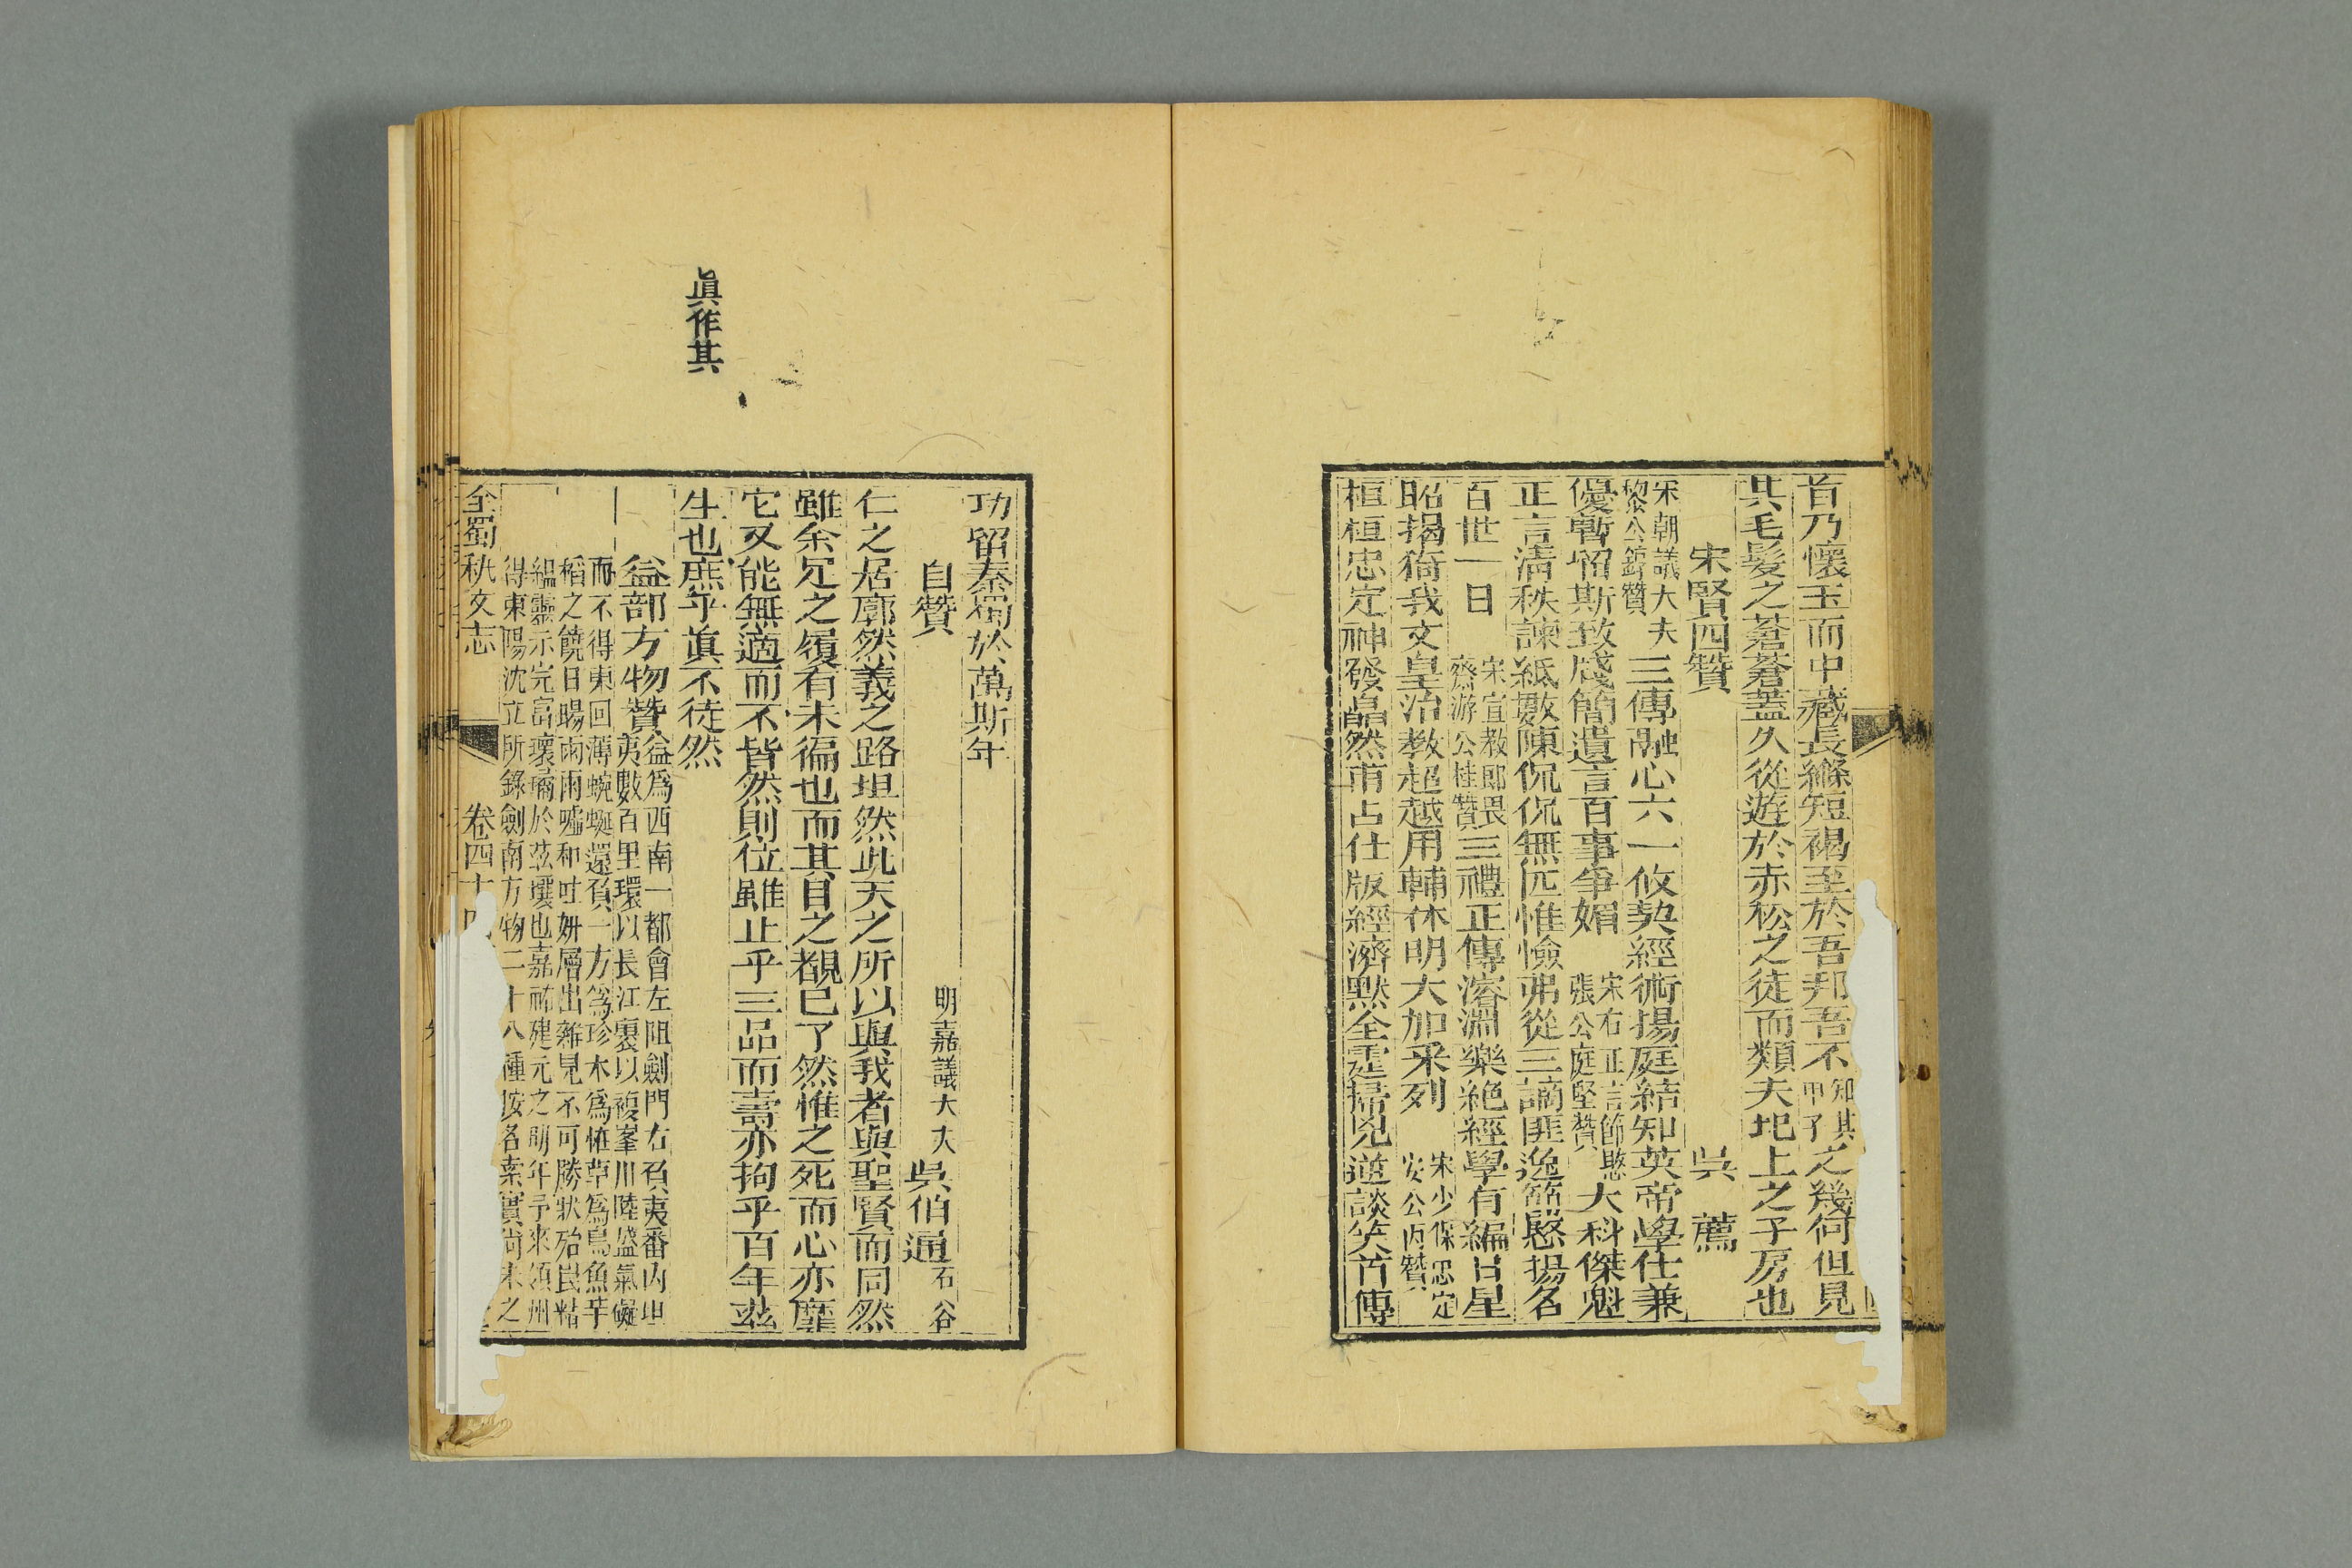 首乃懷玉而中藏長縧短褐至於吾邦吾不知其甲子之幾何但見
其毛髮之蒼蒼蓋久從遊於赤松之徒而類夫圯上之子房也
宋賢四贊 吳 薦
宋朝議大夫黎公錞贊三傳融心六一攸契經術揚庭結知英帝學仕兼
優暫留斯致牋簡遺言百事爭媚 宋右正言節愍張公庭堅贊大科傑魁
正言清秩諫紙數陳侃侃無匹惟憸弗從三謫匪逸節愍揚名
百世一日 宋宣教郎畏齋游公桂贊三禮正傳濬淵樂絶經學有編日星
昭揭猗我文皇治教超越用輔休明大加采列 宋少保忠定安公丙贊
桓桓忠定神發晶然甫占仕版經濟黙全霆掃兇逆談笑首傳
功留秦蜀於萬斯年
自贊 明嘉議大夫吳伯通石谷
仁之居廓然義之路坦然此天之所以與我者與聖賢而同然
雖余足之履有未徧也而其目之覩已了然惟之死而心亦靡
它又能無適而不皆然則位雖止乎三品而壽亦拘乎百年玆
生也庶乎眞不徒然
益部方物贊益爲西南一都會左阻劍門右負夷番内坦
夷數百里環以長江裹以複岑川陸盛氣礙
而不得東回薄蜿蜒還負一方爲珍木爲怪草爲鳥魚芋
稻之饒日暘雨雨噓和吐姸層出雜見不可勝狀殆岀精
緼靈示完富瓌璚於玆壤也嘉祐建元之明年予來領州
得東陽沈立所錄劍南方物二十八種按名索實尚未之
全蜀秇文志 卷四十
眞作其